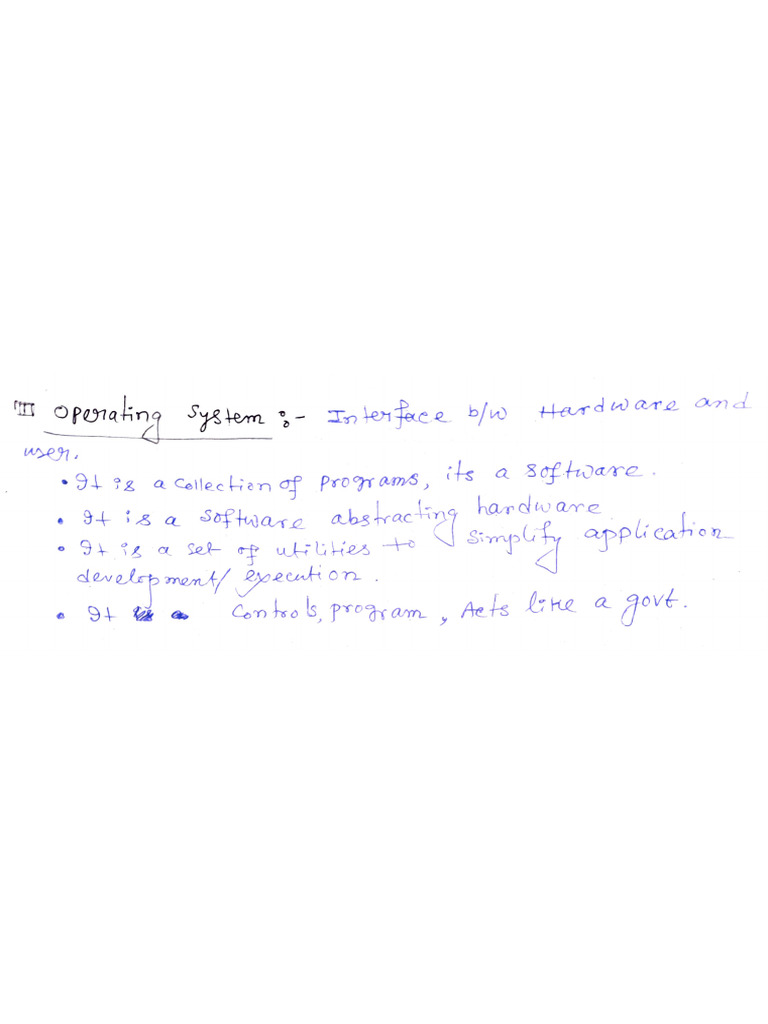 III Operating System :- Interface b/w Hardware and
user.
• It is a collection of programs, its a software.
• It is a software abstracting hardware
• It is a set of utilities to simplify application
development/execution.
• It controls, program, Acts like a govt.